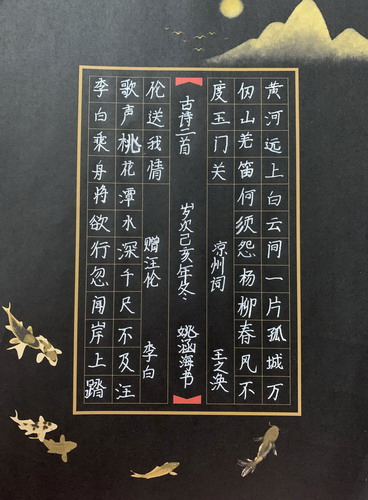 黄河远上白云间一片孤城万
仞山羌笛何须怨杨柳春风不
度玉门关 凉州词 王之涣
古诗二首 岁次己亥年冬 姚涵海书
李白乘舟将欲行忽闻岸上踏
歌声桃花潭水深千尺不及汪
伦送我情 赠汪伦 李白